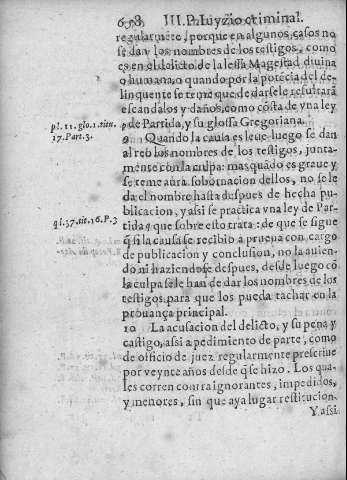 658 III. P. Iuyzio criminal.
regularmẽte, porque en algunos casos no
se dã y los nombres de los testigos, como
es en el delicto de la lessa Magestad diuina
o humana, o quando por la potẽcia del de-
linquente se teme que de darsele resultarã
escandalos y daños, como cõsta de vna ley
de Partida, y su glossa Gregoriana.
pl. 11. glo. 1. titu.
17. Part. 3.
9 Quando la causa es leue luego se dan
al reo los nombres de los testigos, junta-
mente con la culpa: mas quãdo es graue y
se teme aura sobornacion dellos, no se le
da el nombre hasta despues de hecha pu-
blicacion, y assi se practica vna ley de Par-
tida q que sobre esto trata: de que se sigue
q l. 37. tit. 16. P. 3
q̃ si la causa se recibio a prueua con cargo
de publicacion y conclusion, no la auien-
do ni haziendose despues, desde luego cõ
la culpa se le han de dar los nombres de los
testigos para que los pueda tachar en la
prouança principal.
10 La acusacion del delicto, y su pena y
castigo, assi a pedimiento de parte, como
de officio de juez regularmente prescriue
por veynte años desde q̃ se hizo. Los qua-
les corren contra ignorantes, impedidos,
y menores, sin que aya lugar restitucion.
Y assi